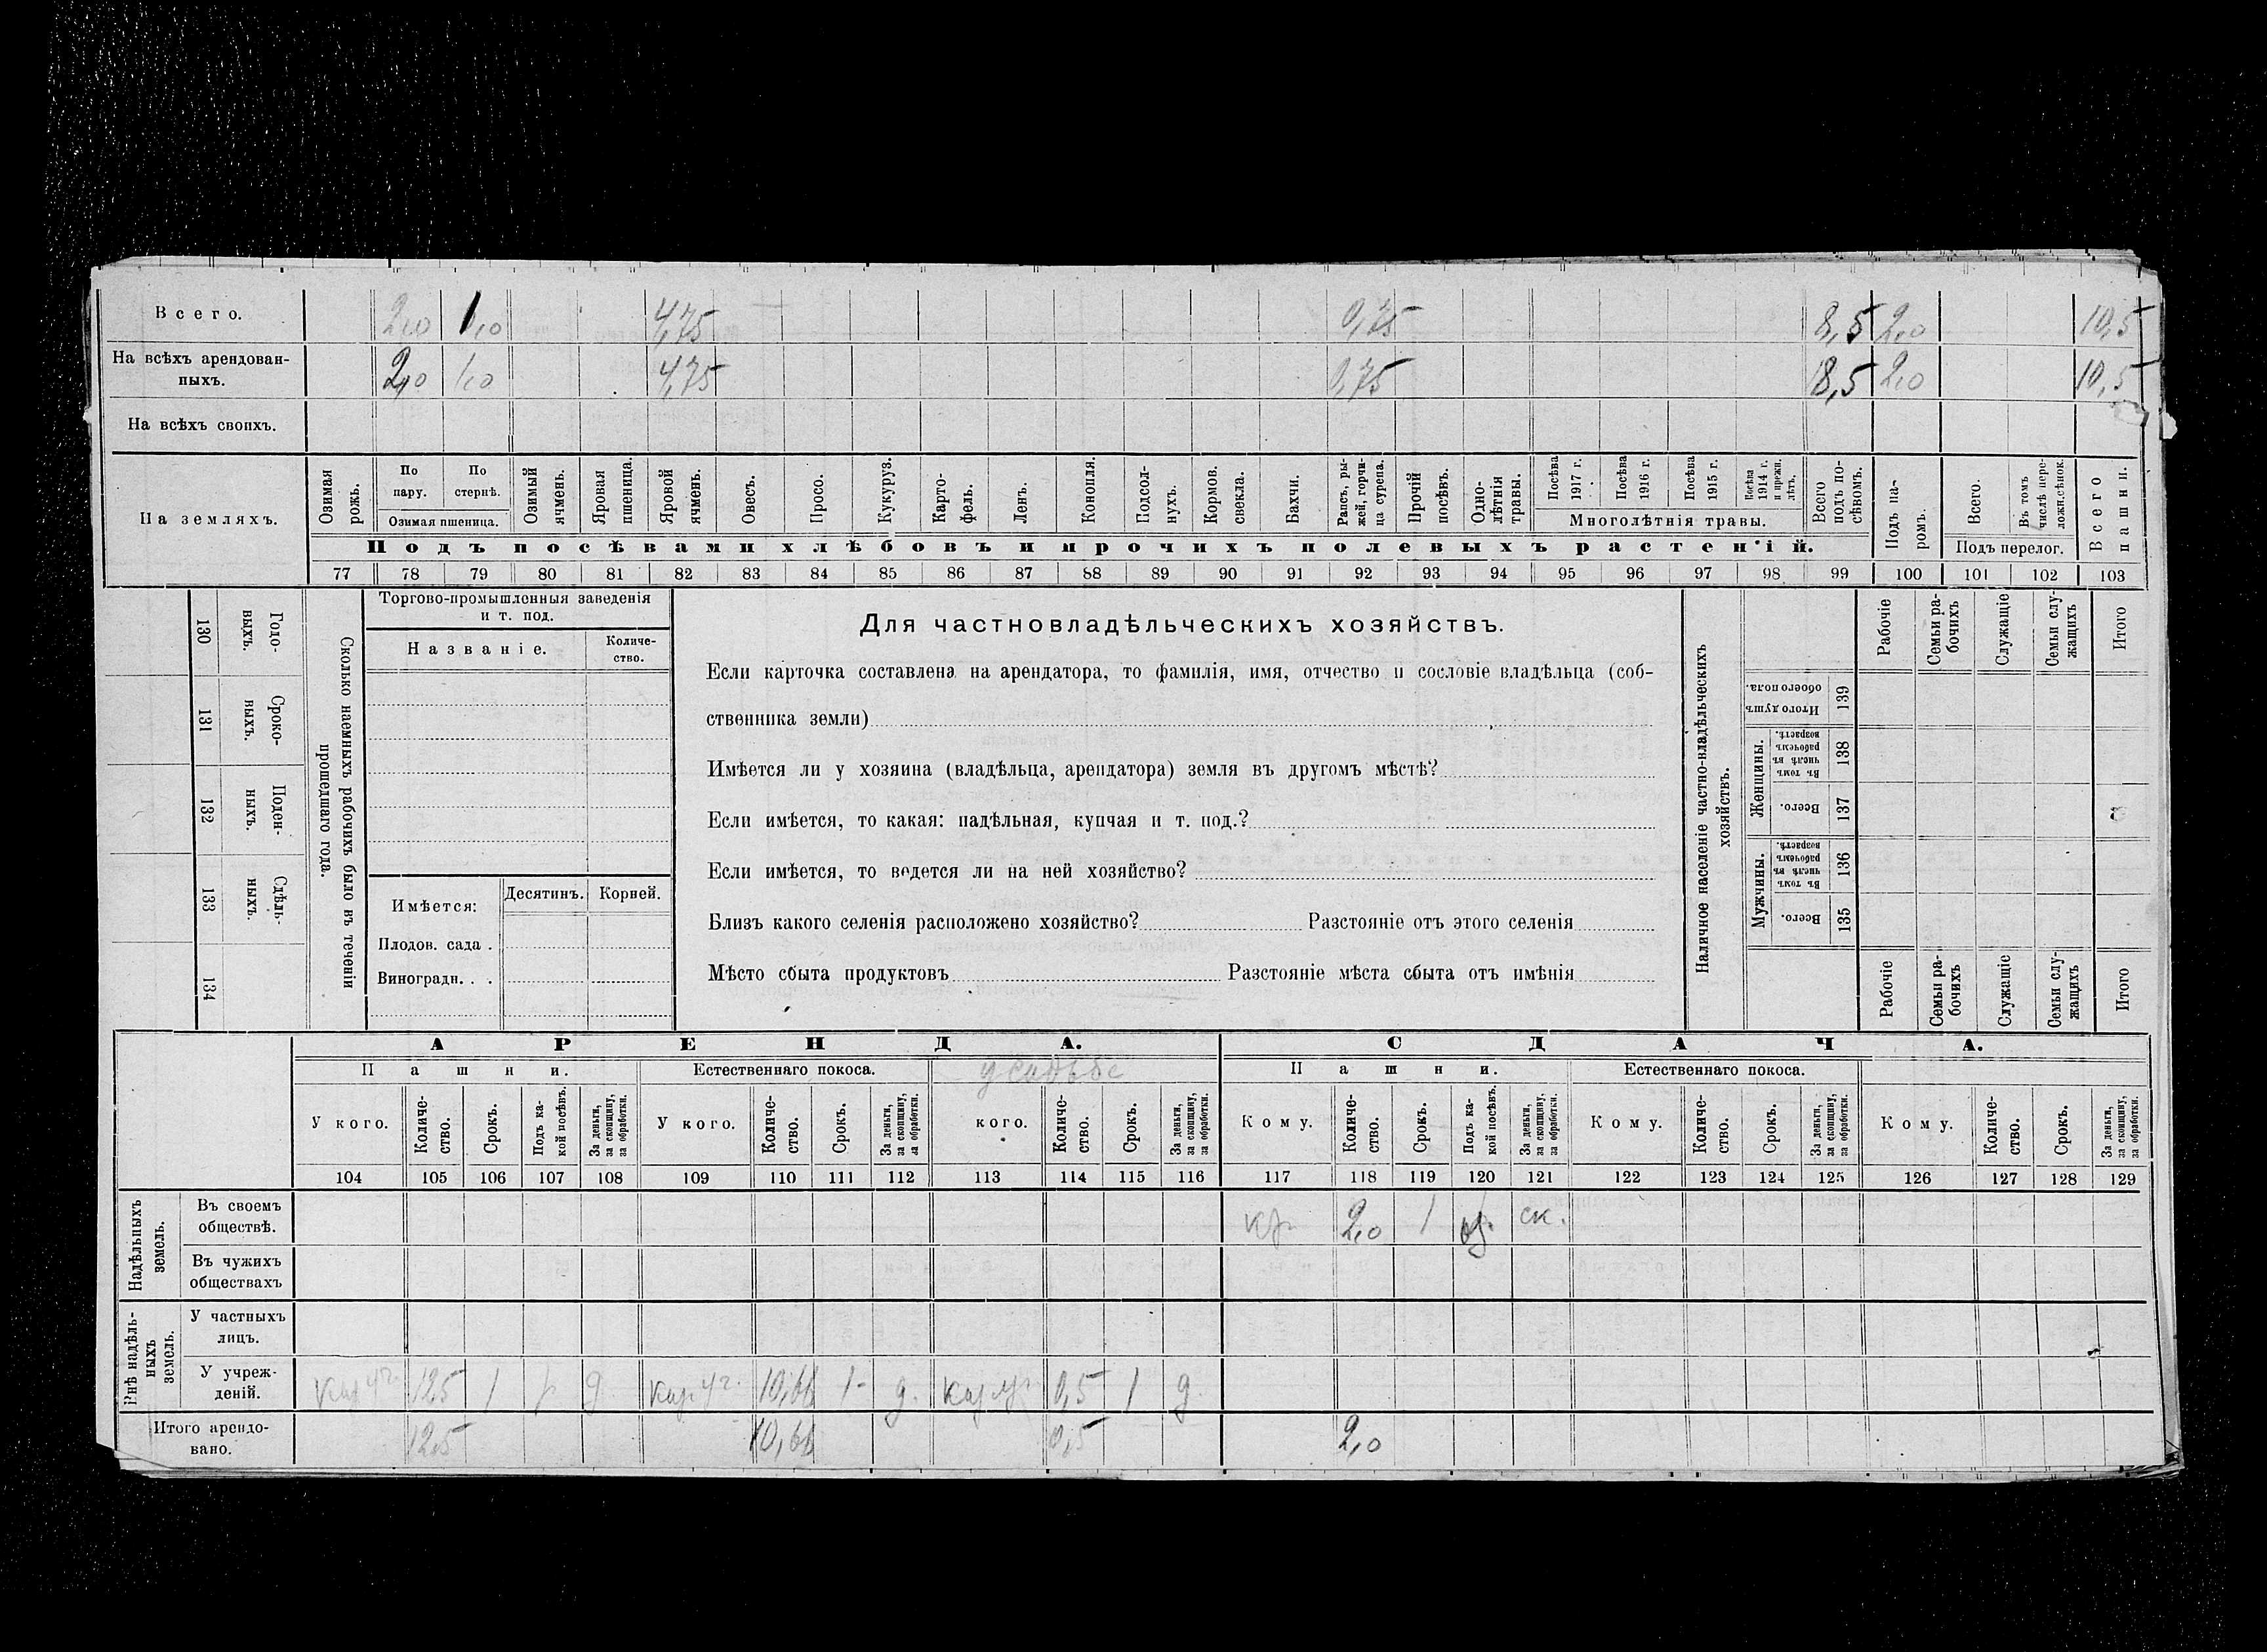 Всего. 2,0 1,0 4,75 0,75 8,5 2,0 10,5
На всѣхъ арендован-
ныхъ. 2,0 1,0 4,75 0,75 8,5 2,0 10,5
На всѣхъ своихъ.
На земляхъ.
Озимая рожь.
По пару.
По стернѣ.
Озимая пшеница.
Озимый ячмень.
Яровая пшеница.
Яровой ячмень.
Овесъ.
Просо.
Кукуруз.
Карто-
фель.
Ленъ.
Конопля.
Подсол-
нухъ.
Кормов. свекла.
Бахчи.
Рапсъ, ры-
жей, горчи-
ца сурепа.
Прочій посѣвъ.
Одно-
лѣтнія травы.
Посѣва 1917 г.
Посѣва 1916 г.
Посѣва 1915 г.
Посѣва 1914 г. и прежн. лѣтъ.
Многолѣтнія травы.
Всего подъ по-
сѣвомъ.
Подъ па-
ромъ.
Всего.
Въ томъ числѣ пере-
ложн.сѣнок.
Подъ перелог.
Всего пашни.
Подъ посѣвами хлѣбовъ и прочихъ полевыхъ растеній.
77 78 79 80 81 82 83 84 85 86 87 88 89 90 91 92 93 94 95 96 97 98 99 100 101 102 103
130 Годо-
выхъ.
131 Сроко-
выхъ.
132 Поден-
ныхъ.
133 Сдѣль-
ныхъ.
134
Сколько наемныхъ рабочихъ было въ теченіи
прошедшаго года.
Торгово-промышленныя заведенія
и т. под.
Названіе.
Количе-
ство.
Имѣется: Десятинъ. Корней.
Плодов. сада .
Виноградн. . .
Для частновладѣльческихъ хозяйствъ.
Если карточка составлена на арендатора, то фамилія, имя, отчество и сословіе владѣльца (соб-
ственника земли)
Имѣется ли у хозяина (владѣльца, арендатора) земля въ другомъ мѣстѣ?
Если имѣется, то какая: надѣльная, купчая и т. под.?
Если имѣется, то ведется ли на ней хозяйство?
Близъ какого селенія расположено хозяйство? Разстояніе отъ этого селенія
Мѣсто сбыта продуктовъ Разстояніе мѣста сбыта отъ имѣнія
Наличное населеніе частно-владѣльческихъ
хозяйствъ.
Рабочіе
Семьи ра-
бочихъ
Служащіе
Семьи слу-
жащихъ
Итого
Итого душъ обоего пола. 139
Женщины.
Въ томъ числѣ въ рабочемъ возрастѣ. 138
Всего. 137
Мужчины.
Въ томъ числѣ въ рабочемъ возрастѣ. 136
Всего. 135
Рабочіе
Семьи ра-
бочихъ
Служащіе
Семьи слу-
жащихъ
Итого
АРЕНДА. СДАЧА.
Пашни. Естественнаго покоса. усадьбе Пашни. Естественнаго покоса.
У кого.
Количе-
ство.
Срокъ.
Подъ ка-
кой посѣвъ.
За деньги, за скопщину, за обработки.
У кого.
Количе-
ство.
Срокъ.
За деньги, за скопщину, за обработки.
кого.
Количе-
ство.
Срокъ.
За деньги, за скопщину, за обработки.
Кому.
Количе-
ство.
Срокъ.
Подъ ка-
кой посѣвъ.
За деньги, за скопщину, за обработки.
Кому.
Количе-
ство.
Срокъ.
За деньги, за скопщину, за обработки.
Кому.
Количе-
ство.
Срокъ.
За деньги, за скопщину, за обработки.
104 105 106 107 108 109 110 111 112 113 114 115 116 117 118 119 120 121 122 123 124 125 126 127 128 129
Надѣльныхъ земель.
Въ своемъ
обществѣ. 2,0 1 ск.
Въ чужихъ
обществахъ
Внѣ надѣль-
ныхъ земель.
У частныхъ
лицъ.
У учреж-
деній. 12,5 1 д 10,66 1 д. 0,5 1 д.
Итого арендо-
вано. 12,5 10,66 0,5 2,0